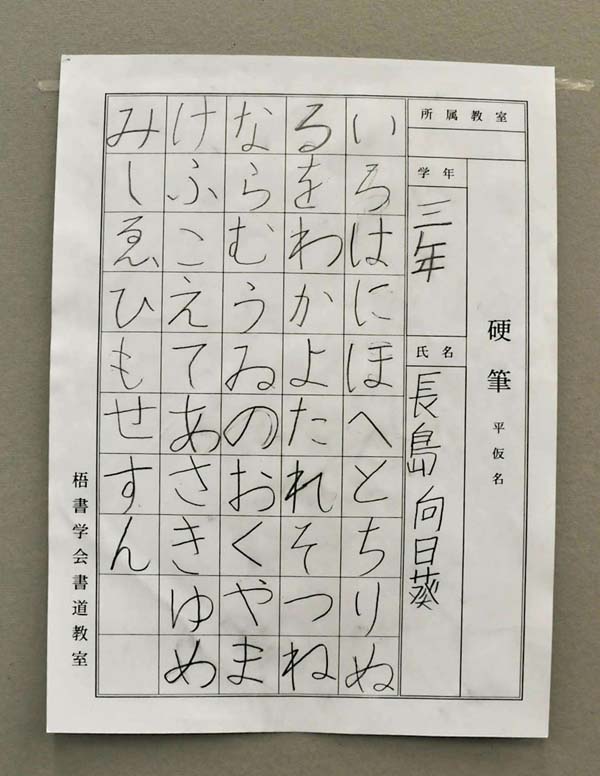 硬筆 平仮名
所属教室
学年
三年
氏名
長島 向日葵
いろはにほへとちりぬ
るをわかよたれそつね
ならむうゐのおくやま
けふこえてあさきゆめ
みしゑひもせすん
梧書学会書道教室